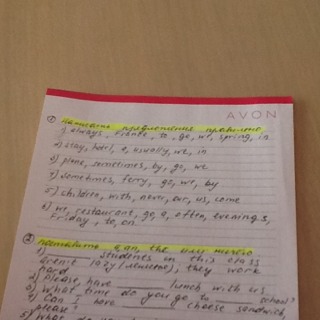 AVON
① Напишите предложения правильно
1) always, France, to, go, we, spring, in
2) stay, hotel, a, usually, we, in
3) plane, sometimes, by, go, we
4) sometimes, ferry, go, we, by
5) children, with, never, our, us, come
6) we, restaurant, go, a, often, evenings,
Friday, to, on
② поставьте a, an, the или ничего
1) students in this class
aren't lazy (ленивые), they work
hard
2) Please, have lunch with us
3) What time do you go to school?
4) Can I have cheese sandwich,
please?